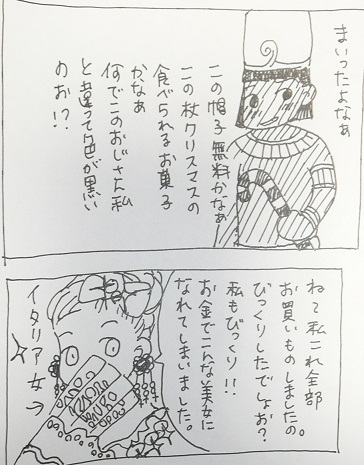 まいったよなぁ
この帽子無料かなぁ
この杖クリスマスの
食べられるお菓子
かなぁ
何でこのおじさん私
と違って色が黒い
のお!?
ねて私これ全部
お買いものしましたの。
びっくりしたでしょお?
私もびっくり!!
お金でこんな美女に
なれてしまいました。
イタリア女→